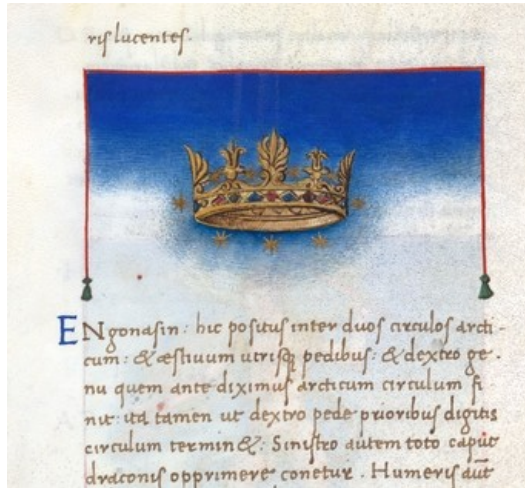 ris lucentes.
ENgonasin: hic positus inter duos circulos arcti-
cum: & æstiuum utrisq; pedibus: & dextro ge-
nu quem ante diximus arcticum circulum fi
nit: ita tamen ut dextro pede prioribus digitis
circulum termin&: Sinistro autem toto caput
draconis opprimere conetur. Humeris aut̄